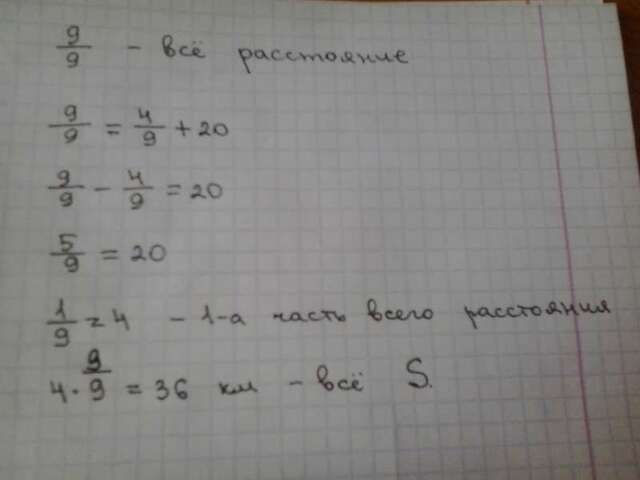 9/9 - всё расстояние
9/9 = 4/9 + 20
9/9 - 4/9 = 20
5/9 = 20
1/9 = 4 - 1-а часть всего расстояния
4 · 9/9 = 36 км - всё S.